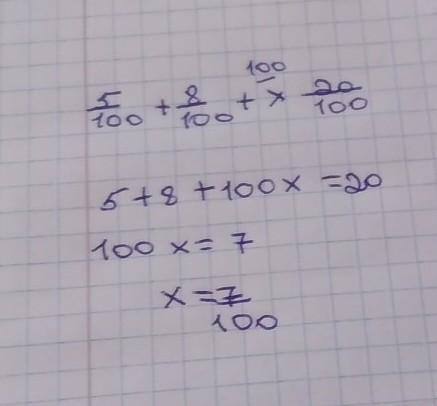 100
5/100 + 8/100 + x 20/100
5+8+100x =20
100 x = 7
x = 7/100